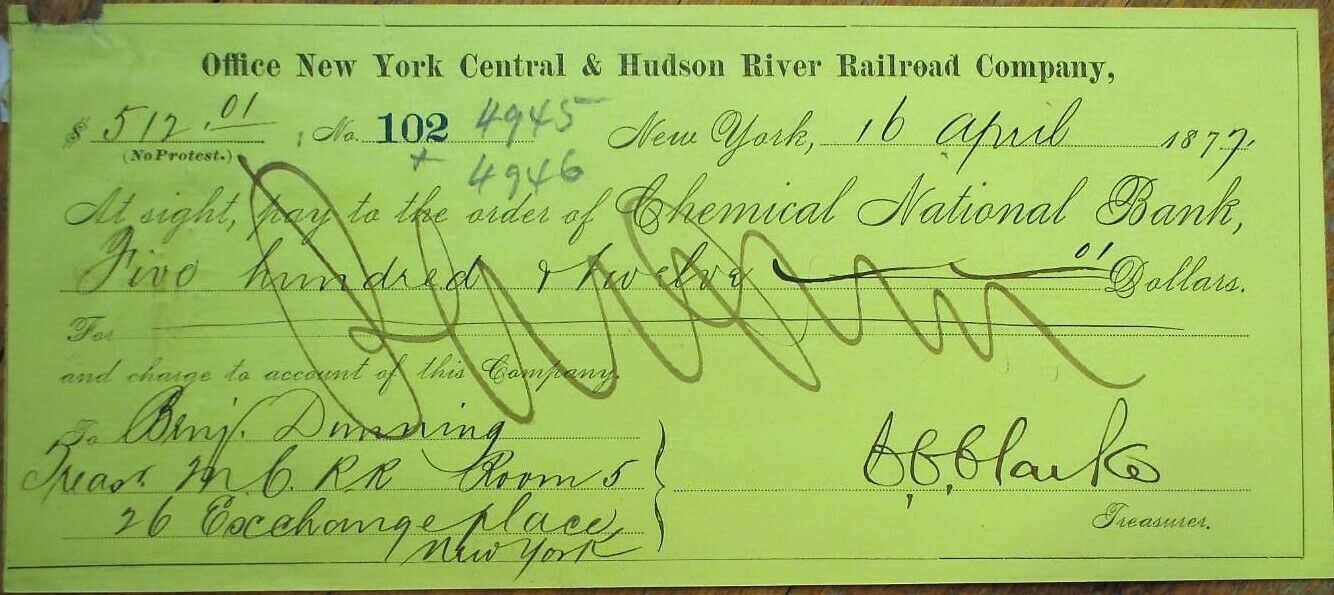 Office New York Central & Hudson River Railroad Company,
$ 512.01 No. 102 4945 New York, 16 April 1877.
(No Protest.) + 4946
At sight, pay to the order of Chemical National Bank,
Five hundred & twelve 01 Dollars.
For
and charge to account of this Company.
To Benj. Dunning
Treas. M. C. R.R Room 5
26 Exchange place,
New York
C. C. Clarke
Treasurer.